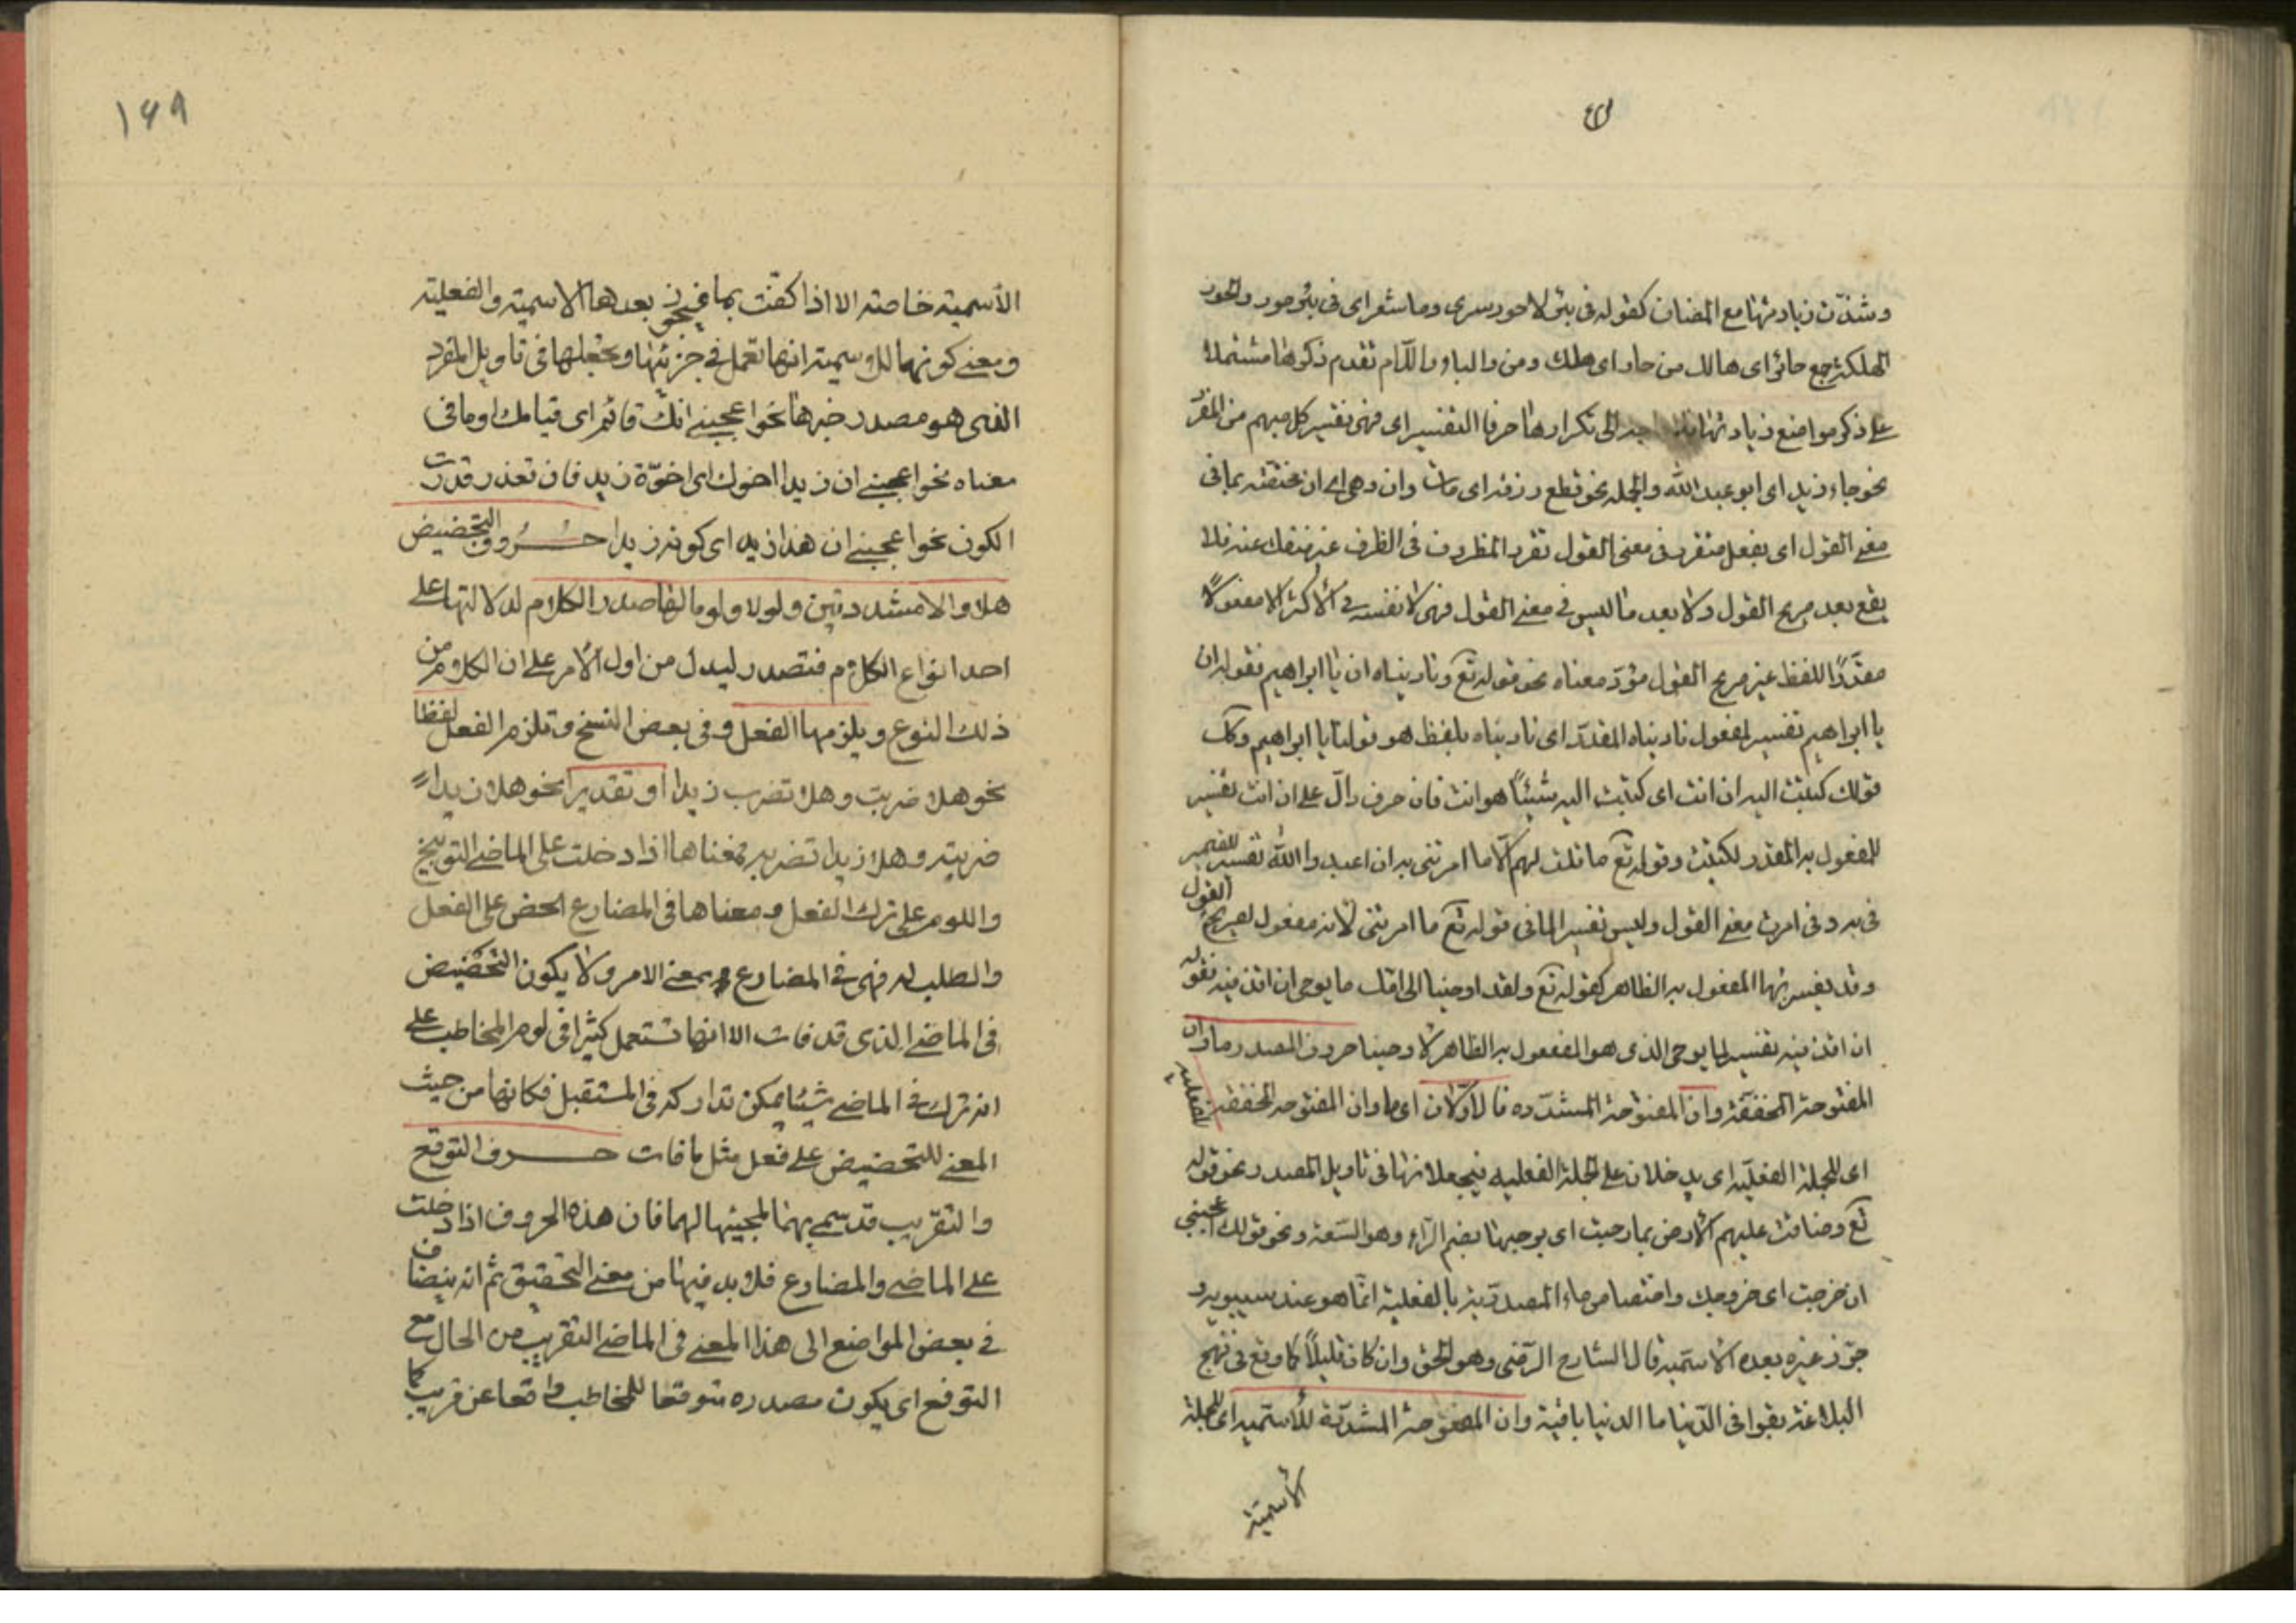 وشذّت زيادتها مع المضاف كقوله في بئر لا حور سرى وما شعر اى فى بئر حور والحور
الهلكة جمع حائر اى هالك من حار اى هلك ومن والباء واللام تقدم ذكرها مشتملا
على ذكر مواضع زيادتها فلا الى تكرارها حرفا التفسير اى فهى تفسير كل مبهم من المفرد
نحو جاء زيد اى ابو عبد الله والجملة نحو قطع رزقه اى مات وان وهى اى ان مختصة بما فى
معنى القول اى بفعل متقرر فى معنى القول تقرر المظروف فى الظرف غير منفك عنه فلا
يقع بعد صريح القول ولا بعد ما ليس فى معنى القول فهى لا تفسر فى الأكثر الا مفعولاً
مقدّرًا للفظ غير صريح القول مؤدّ معناه نحو قوله تع وناديناه ان يا ابراهيم فقوله ان
يا ابراهيم تفسير لمفعول ناديناه المقدّر اى ناديناه بلفظ هو قولنا يا ابراهيم وكك
قولك كتبت اليه ان انت اى كتبت اليه شيئًا هو انت فان حرف دالّ على ان انت تفسير
للمفعول به المقدر لكتبت وقوله تع ما قلت لهم الا ما امرتنى به ان اعبدوا الله تفسير للضمير
فى به وفى امرت معنى القول وليس تفسير الما فى قوله تع ما امرتنى لأنه مفعول لصريح القول
وقد يفسر بها المفعول به الظاهر كقوله تع ولقد اوحينا الى امك ما يوحى ان اقذفيه فقوله
ان اقذفيه تفسير لما يوحى الذى هو المفعول به الظاهر لاوحينا حروف المصدر ما وان
المفتوحة المخففة وان المفتوحة المشدّدة فالاوّلان اى ما وان المفتوحة المخففة للفعلية
اى للجملة الفعليّة اى يدخلان على الجملة الفعلية فيجعلانها فى تأويل المصدر نحو قوله
تع وضاقت عليهم الأرض بما رحبت اى برحبها بضم الرّاء وهو السّعة ونحو قولك اعجبنى
ان خرجت اى خروجك واختصاص ماء المصدريّة بالفعلية انّما هو عند سيبويه و
جوّز غيره بعده الأسميّة قال الشارح الرّضى وهو الحق وان كان قليلاً كما وقع فى نهج
البلاغة بقوا فى الدّنيا ما الدنيا باقية وان المفتوحة المشدّدة للأسميّة اى للجملة
الأسميّة
١۶٩
الأسمية خاصة الا اذا كفت بما فيجوز بعدها الاسمية والفعلية
ومعنى كونها للاسمية انها تعمل فى جزئيها وتجعلها فى تاويل المفرد
الذى هو مصدر خبرها نحو اعجبنى انك قائم اى قيامك او ما فى
معناه نحو اعجبنى ان زيدا اخوك اى اخوّة زيد فان تعذر قدرت
الكون نحو اعجبنى ان هذا زيد اى كونه زيدا حروف التحضيض
هلا والا مشددتين ولولا ولوما لها صدر الكلام لدلالتها على
احد انواع الكلام فتصدر ليدل من اول الأمر على ان الكلام من
ذلك النوع ويلزمها الفعل وفى بعض النسخ وتلزم الفعل لفظا
نحو هلا ضربت وهلا تضرب زيدا او تقديرا نحو هلا زيدا
ضربته وهلا زيدا تضربه فمعناها اذا دخلت على الماضى التوبيخ
واللوم على ترك الفعل ومعناها فى المضارع الحض على الفعل
والطلب له فهى فى المضارع بمعنى الامر ولا يكون التحضيض
فى الماضى الذى قد فات الا انها تستعمل كثيرا فى لوم المخاطب على
انه ترك فى الماضى شيئا يمكن تداركه فى المستقبل فكانها من حيث
المعنى للتحضيض على فعل مثل ما فات حرف التوقع
والتقريب قد سمى بهما لمجيئها لهما فان هذه الحروف اذا دخلت
على الماضى والمضارع فلا بد فيها من معنى التحقيق ثم انه ينضاف
فى بعض المواضع الى هذا المعنى فى الماضى التقريب من الحال مع
التوقع اى يكون مصدره متوقعا للمخاطب واقعا عن قريب كما